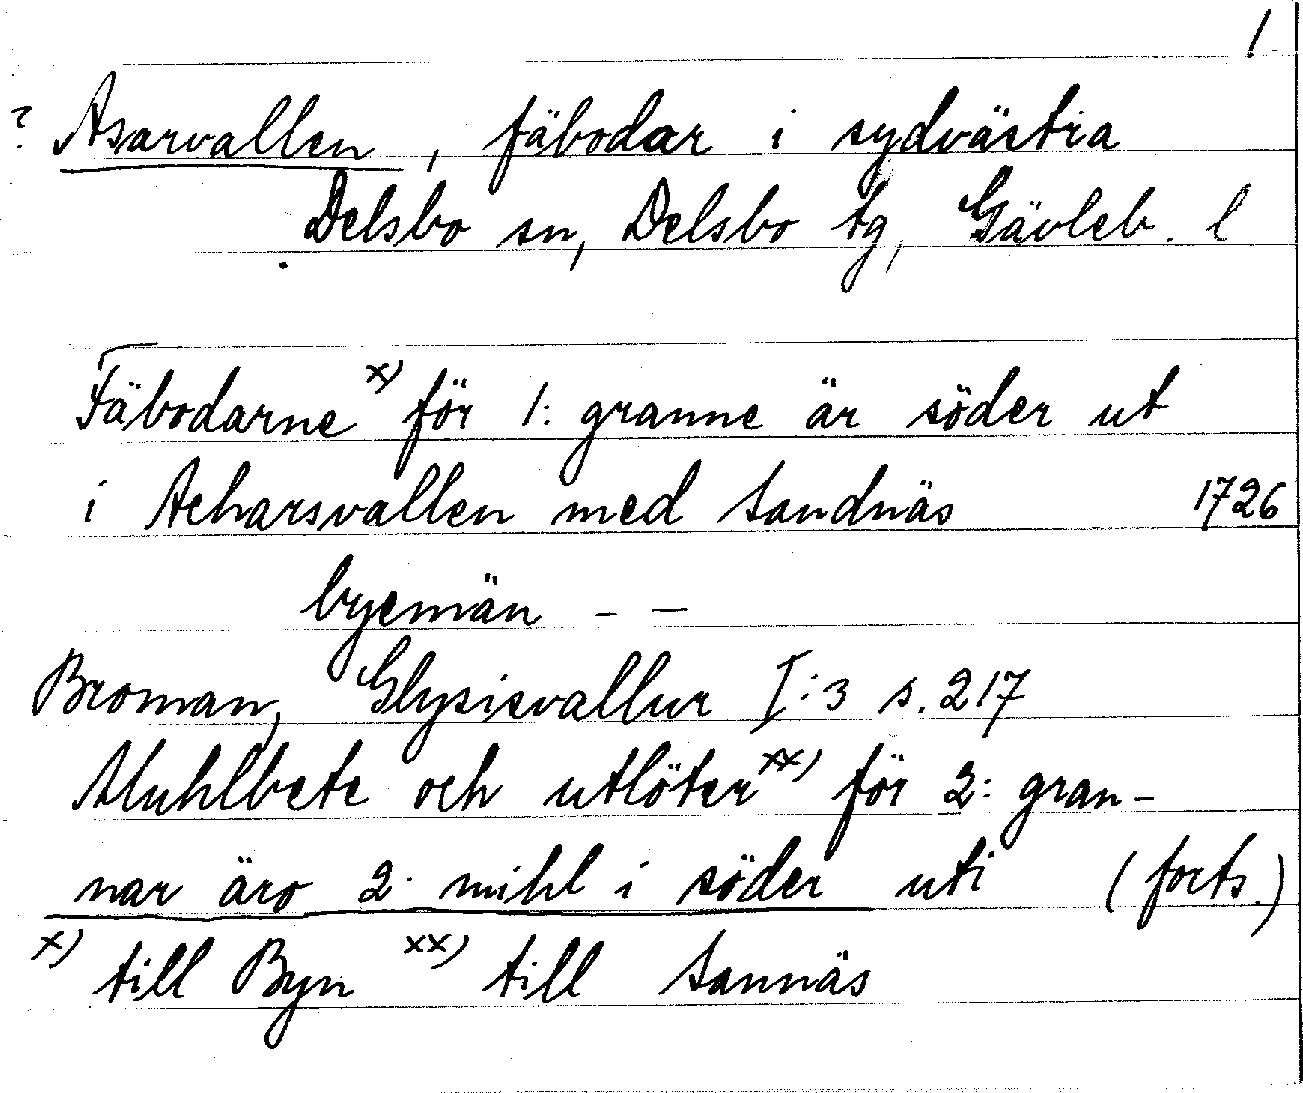 1
? Asarvallen, fäbodar i sydvästra
Delsbo sn, Delsbo tg, Gävleb. l
Fäbodarne x) för 1: granne är söder ut
i Acharsvallen med Sandnäs 1726
byemän - -
Broman, Glysisvallur I:3 s. 217
Muhlbete och utlöter xx) för 2: gran-
nar äro 2. mihl i söder uti (forts.)
x) till Byn xx) till Sannäs